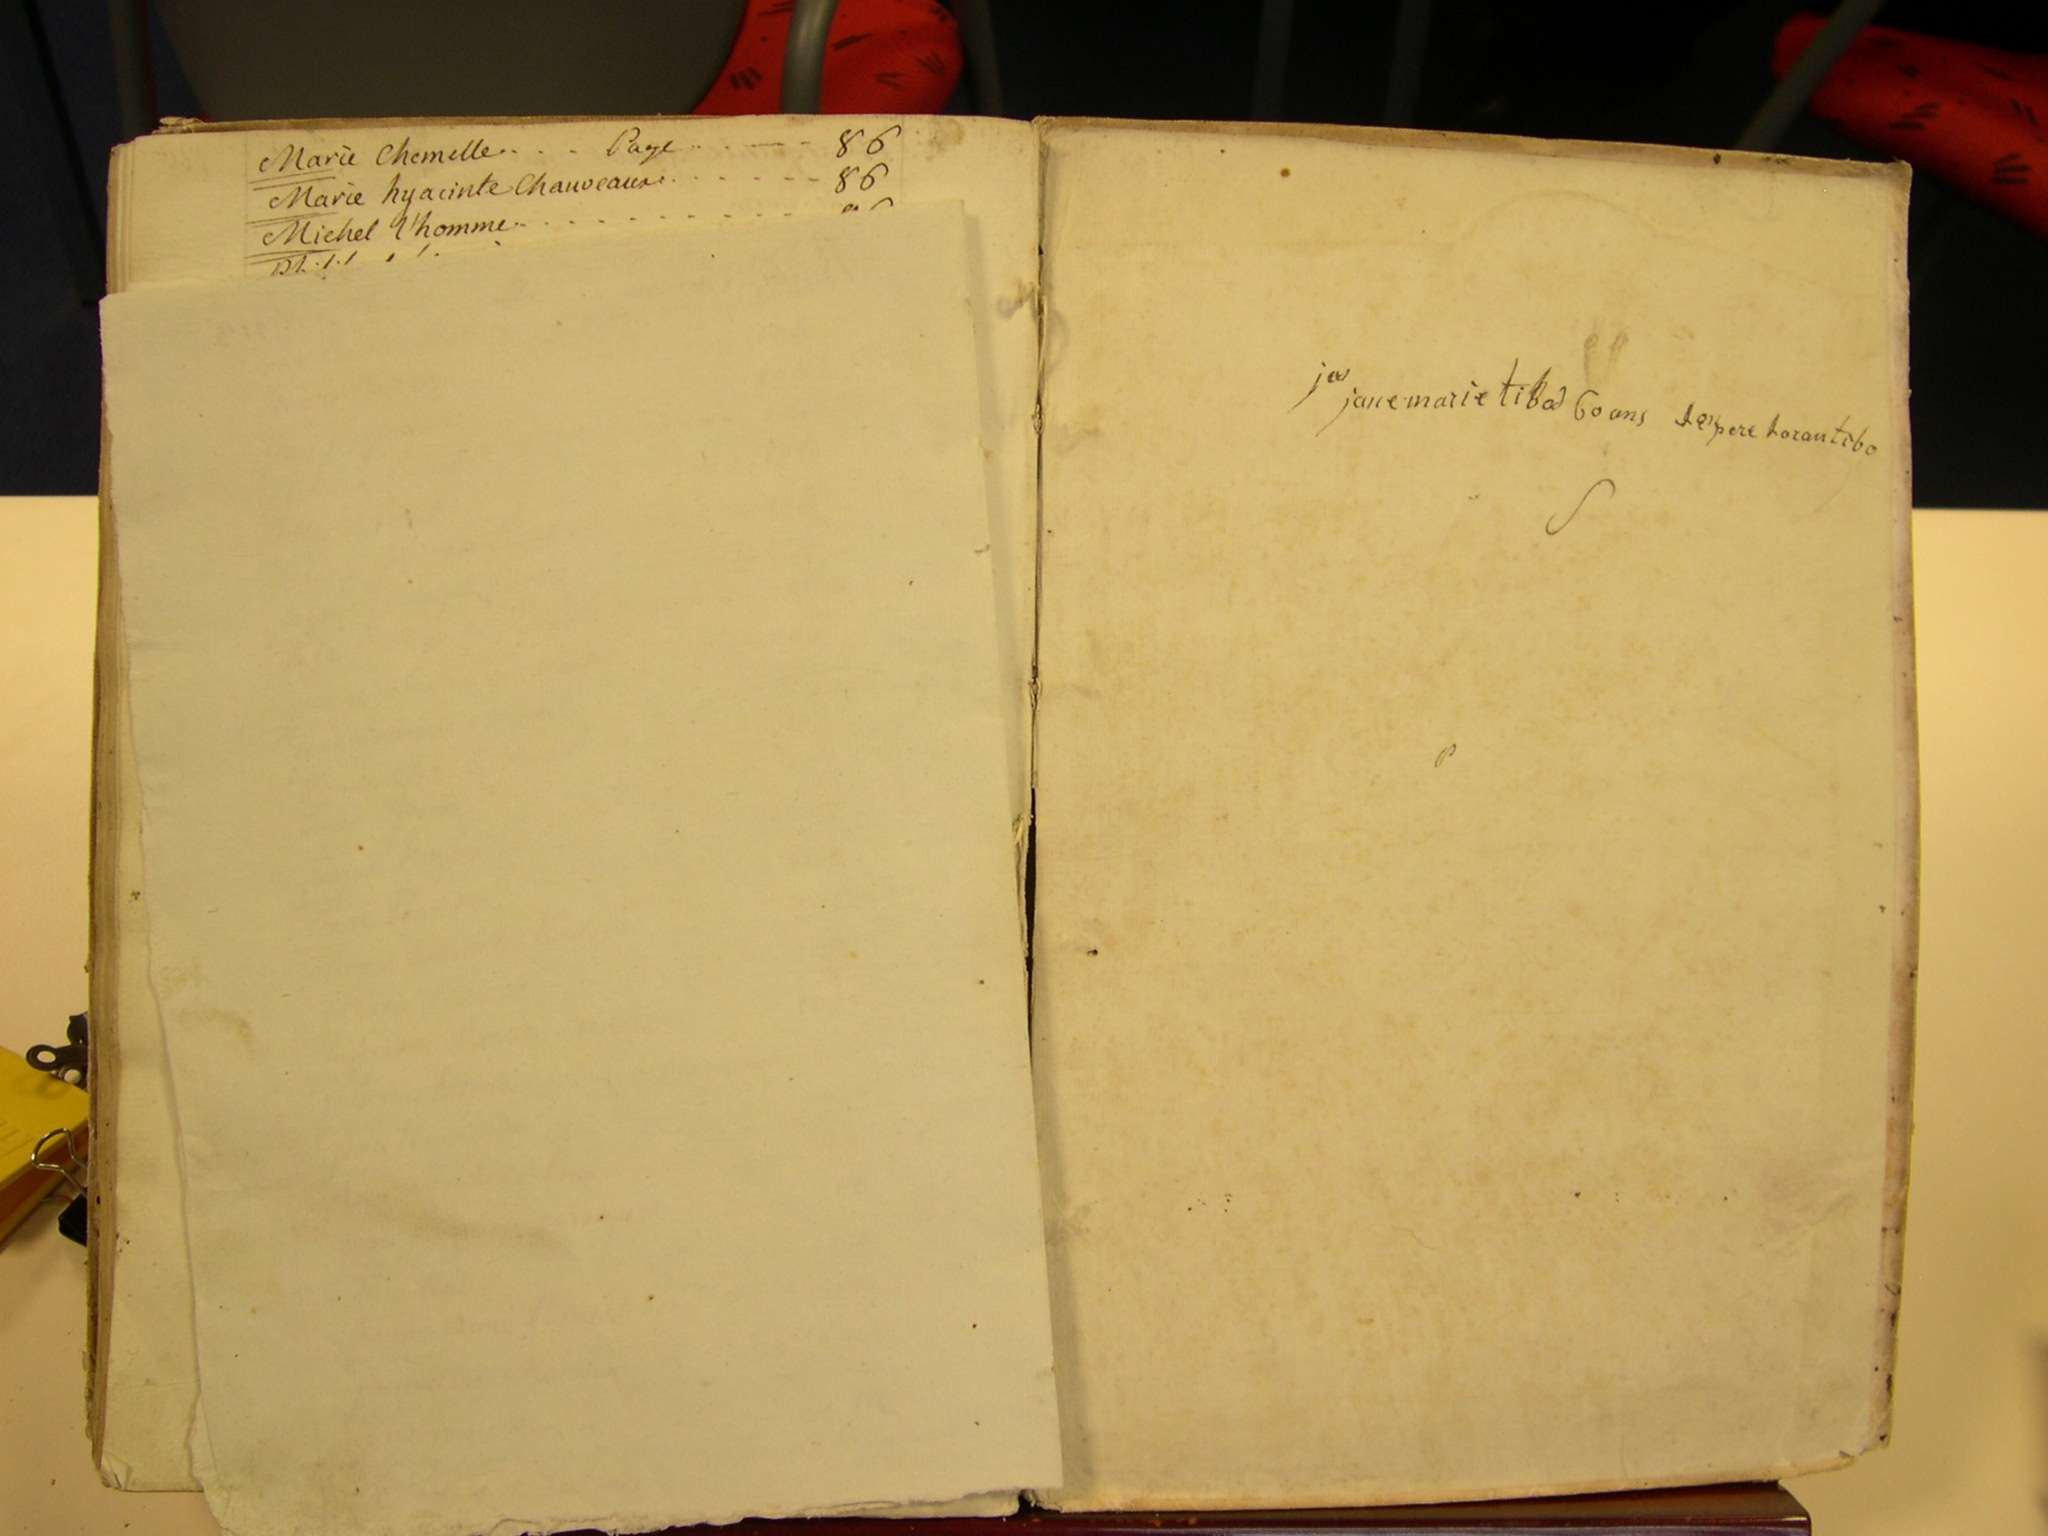 Marie Chemelle . . . Page . . . . . . . 86
Marie hyacinte Chauveaux . . . . . . . 86
Michel l'homme . . . . . . . . . .
janemarie tibod 60 ans pere loran tibo